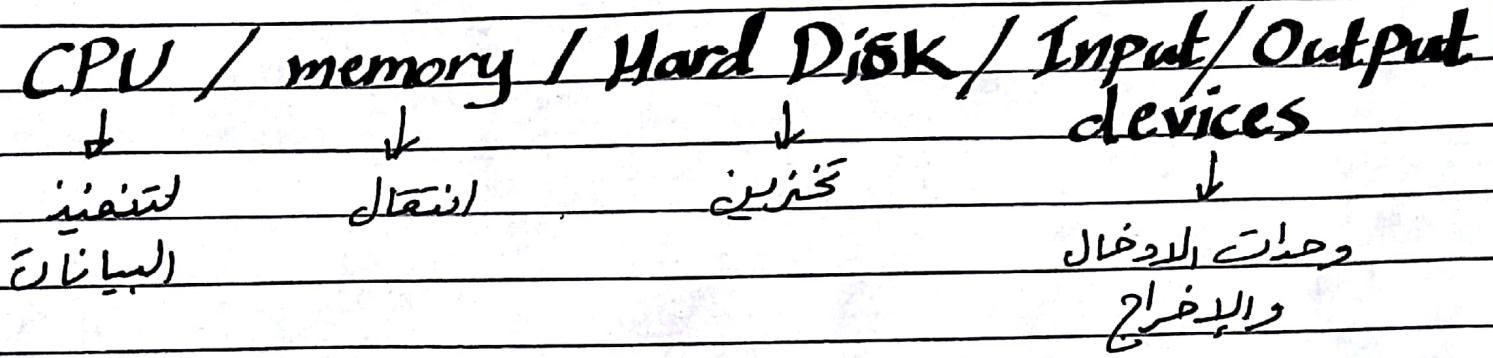 CPU / memory / Hard Disk / Input/Output
devices
لتنفيذ انتقال تخزين
البيانات وحدات الادخال
والإخراج